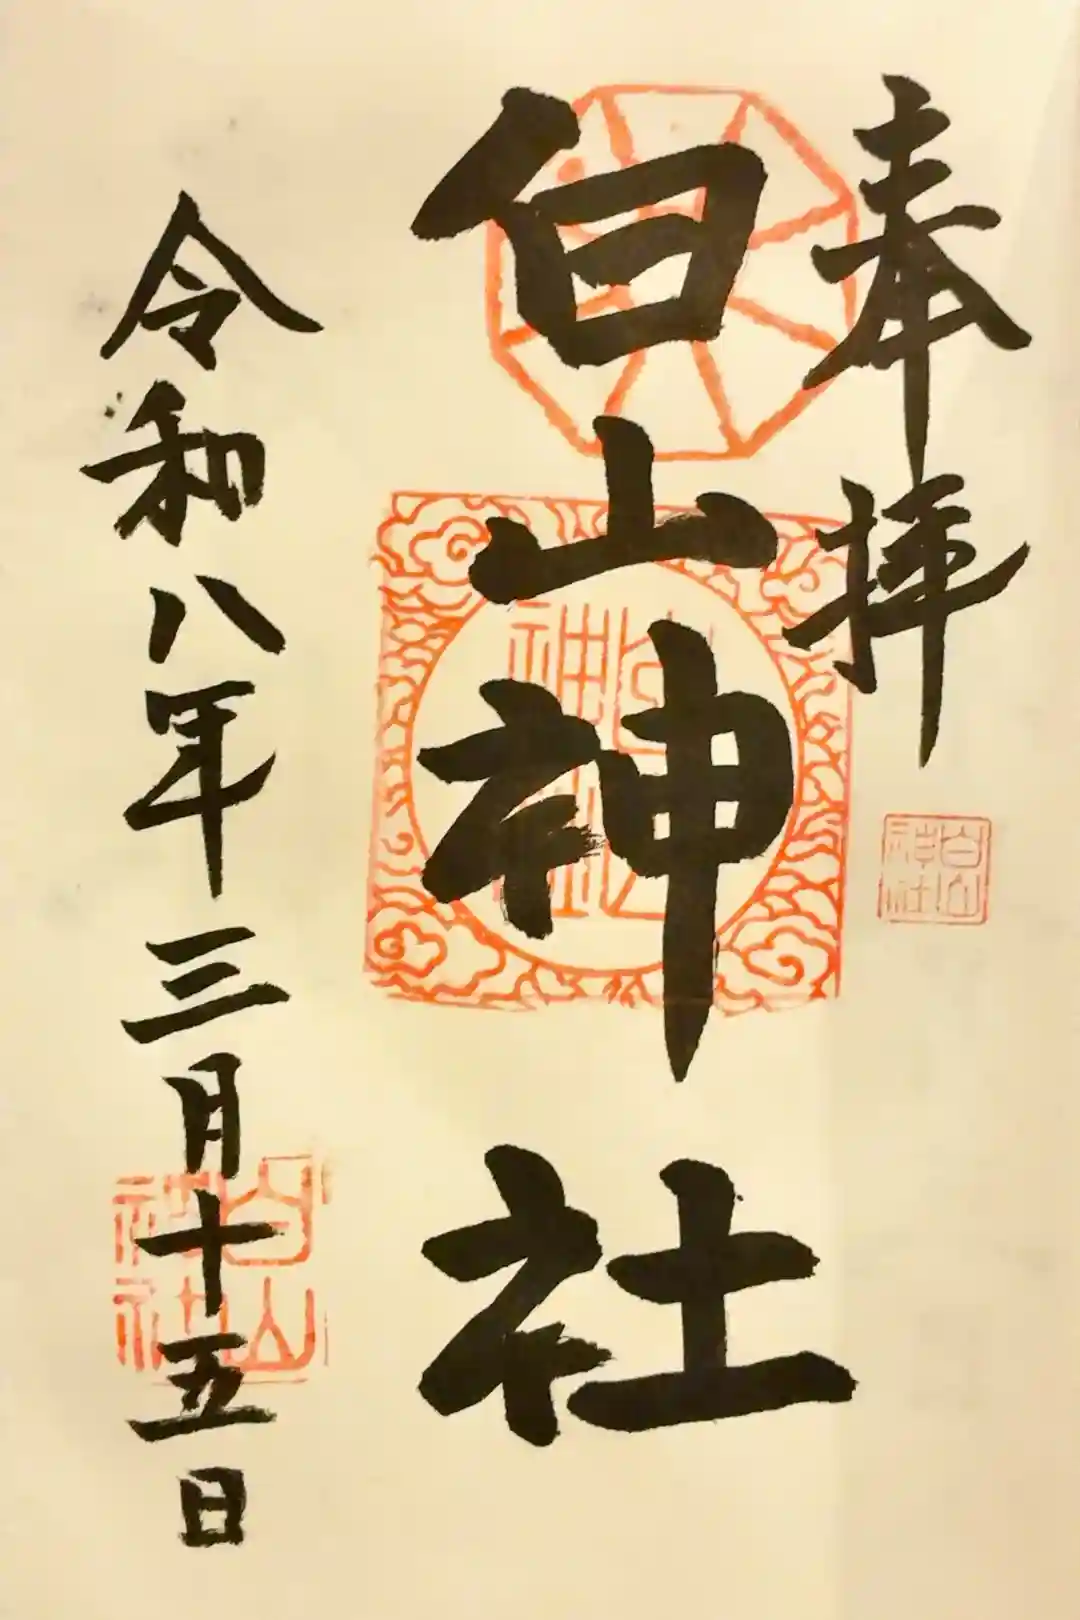 奉拝
白山神社
令和八年三月十五日
白山神社
白山神社
白山神社